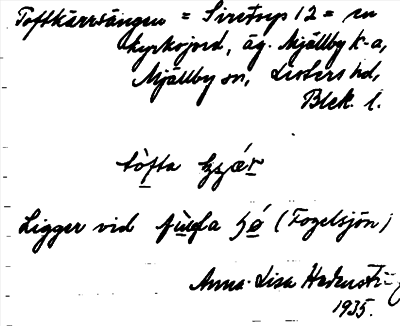 Toftkärrsängen = Siretorp 12 = en
kyrkojord, äg. Mjällby k-a,
Mjällby sn, Listers hd,
Blek. l.
tòfta
Ligger vid fùgla (Fogelsjön)
Anna-Lisa
1935.